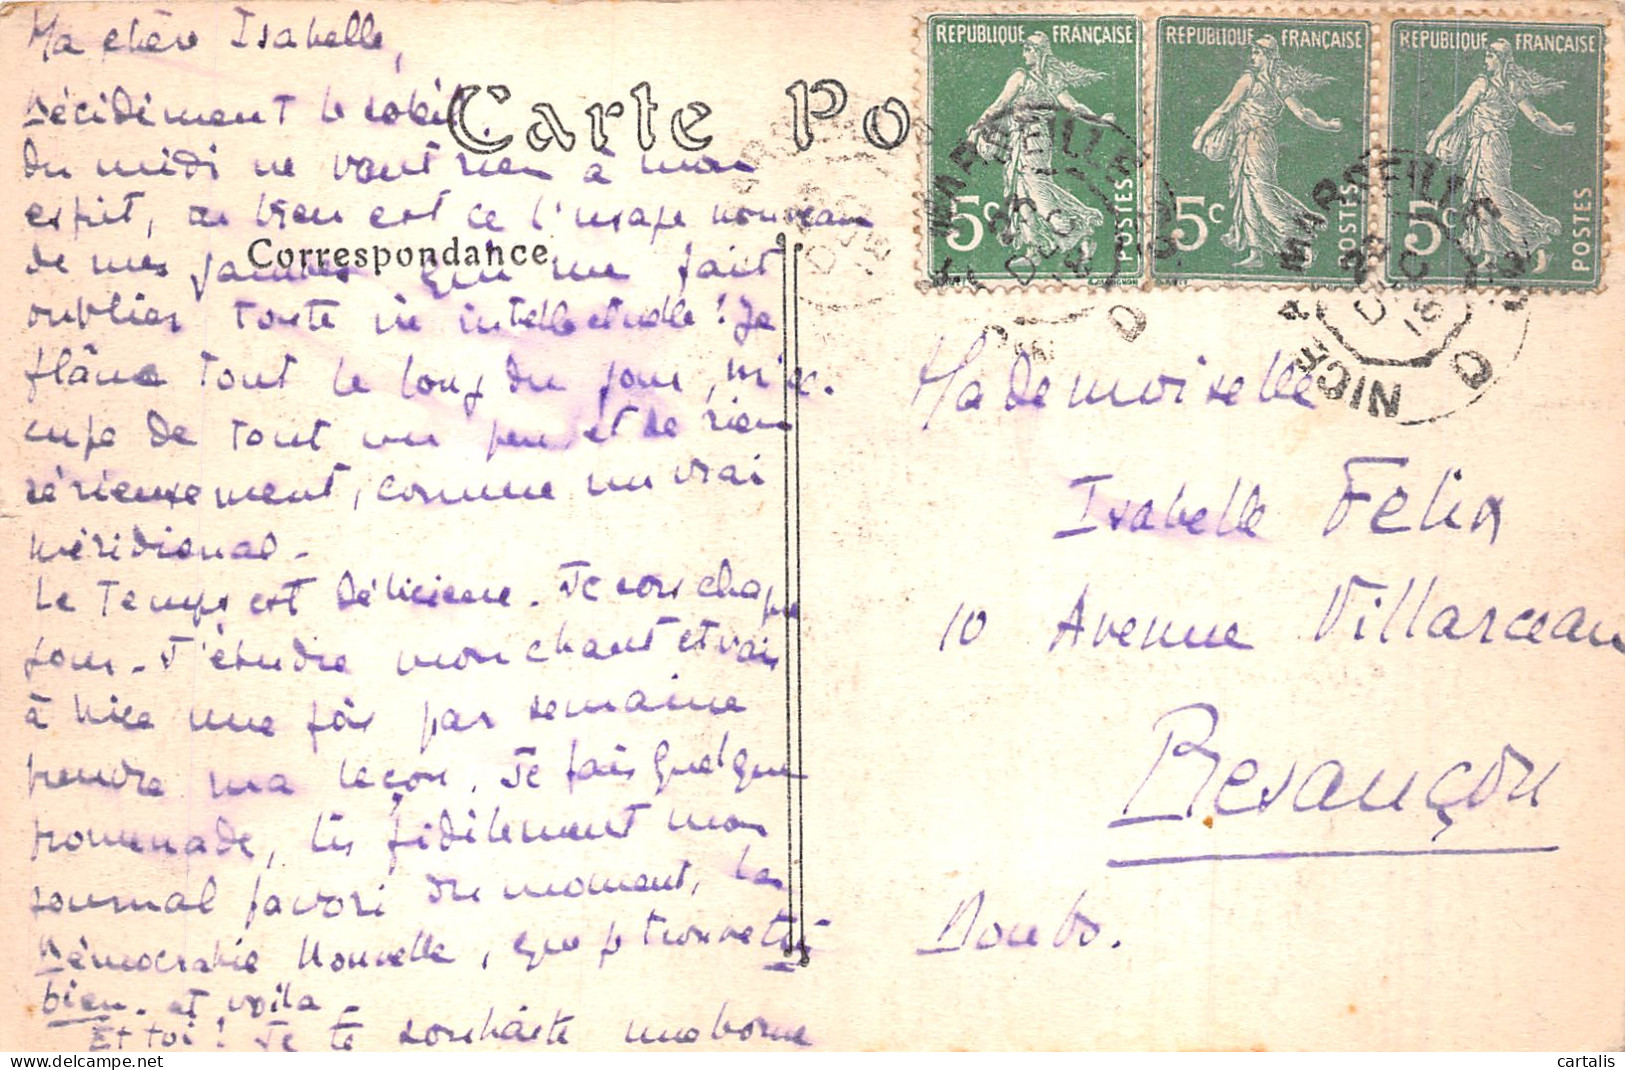 Ma chère Isabelle,
Décidément le soleil
du midi ne vaut rien à mon
esprit, ou bien est ce l'usage nouveau
de mes jambes qui me fait
oublier toute vie intellectuelle! Je
flâne tout le long du jour, m'oc-
cupe de tout un peu et de rien
sérieusement, comme un vrai
méridional.
Le temps est délicieux. Je sors chaque
jour. J'étudie mon chant et vais
à Nice une fois par semaine
prendre ma leçon. Je fais quelque
promenade, lis fidèlement mon
journal favori du moment, la
Démocratie Nouvelle, que je trouve très
bien. et voila
Et toi! Je te souhaite une bonne
Carte Po
Correspondance
REPUBLIQUE FRANÇAISE
5c POSTES
REPUBLIQUE FRANÇAISE
5c POSTES
REPUBLIQUE FRANÇAISE
5c POSTES
MARSEILLE
23 DEC 18
MARSEILLE
23 DEC 18
NICE
Mademoiselle
Isabelle Felix
10 Avenue Villarceau
Besançon
Doubs.
cartalis